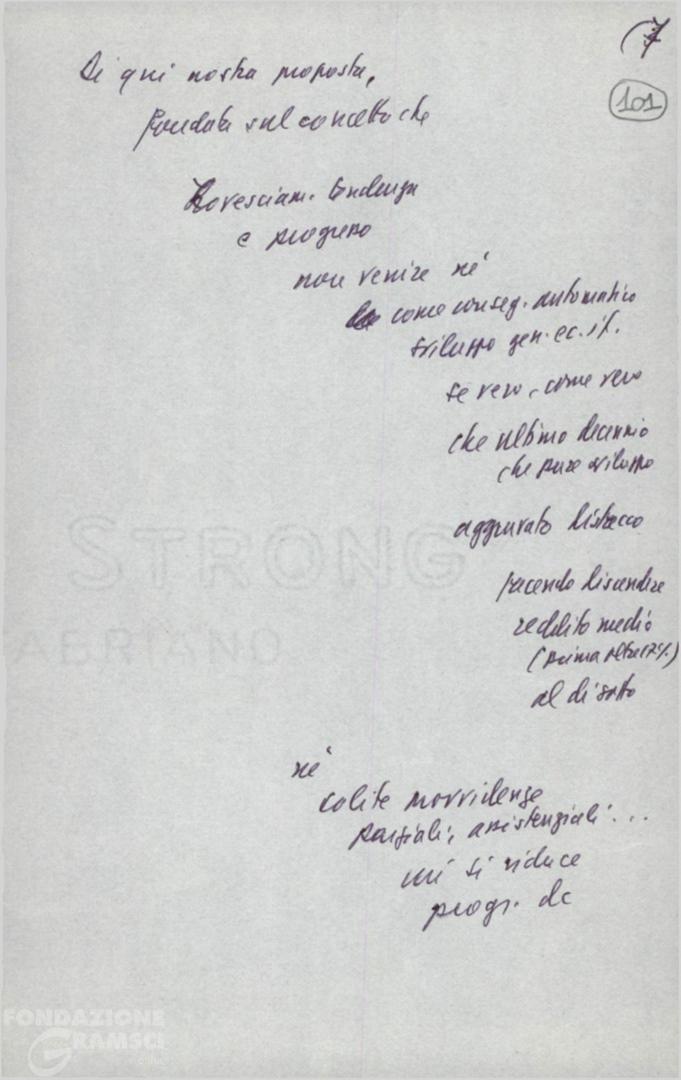 7
101
Di qui nostra proposta,
fondata sul concetto che
Rovesciam. tendenza
e progresso
non venire né
come conseg. automatico
sviluppo gen. ec. it.
se vero, come vero
che ultimo decennio
che pure sviluppo
aggravato distacco
facendo discendere
reddito medio
(prima oltre
al di sotto
né
solite provvidenze
parziali, assistenziali...
cui si riduce
progr. dc
STRONG
FABRIANO
FONDAZIONE
GRAMSCI